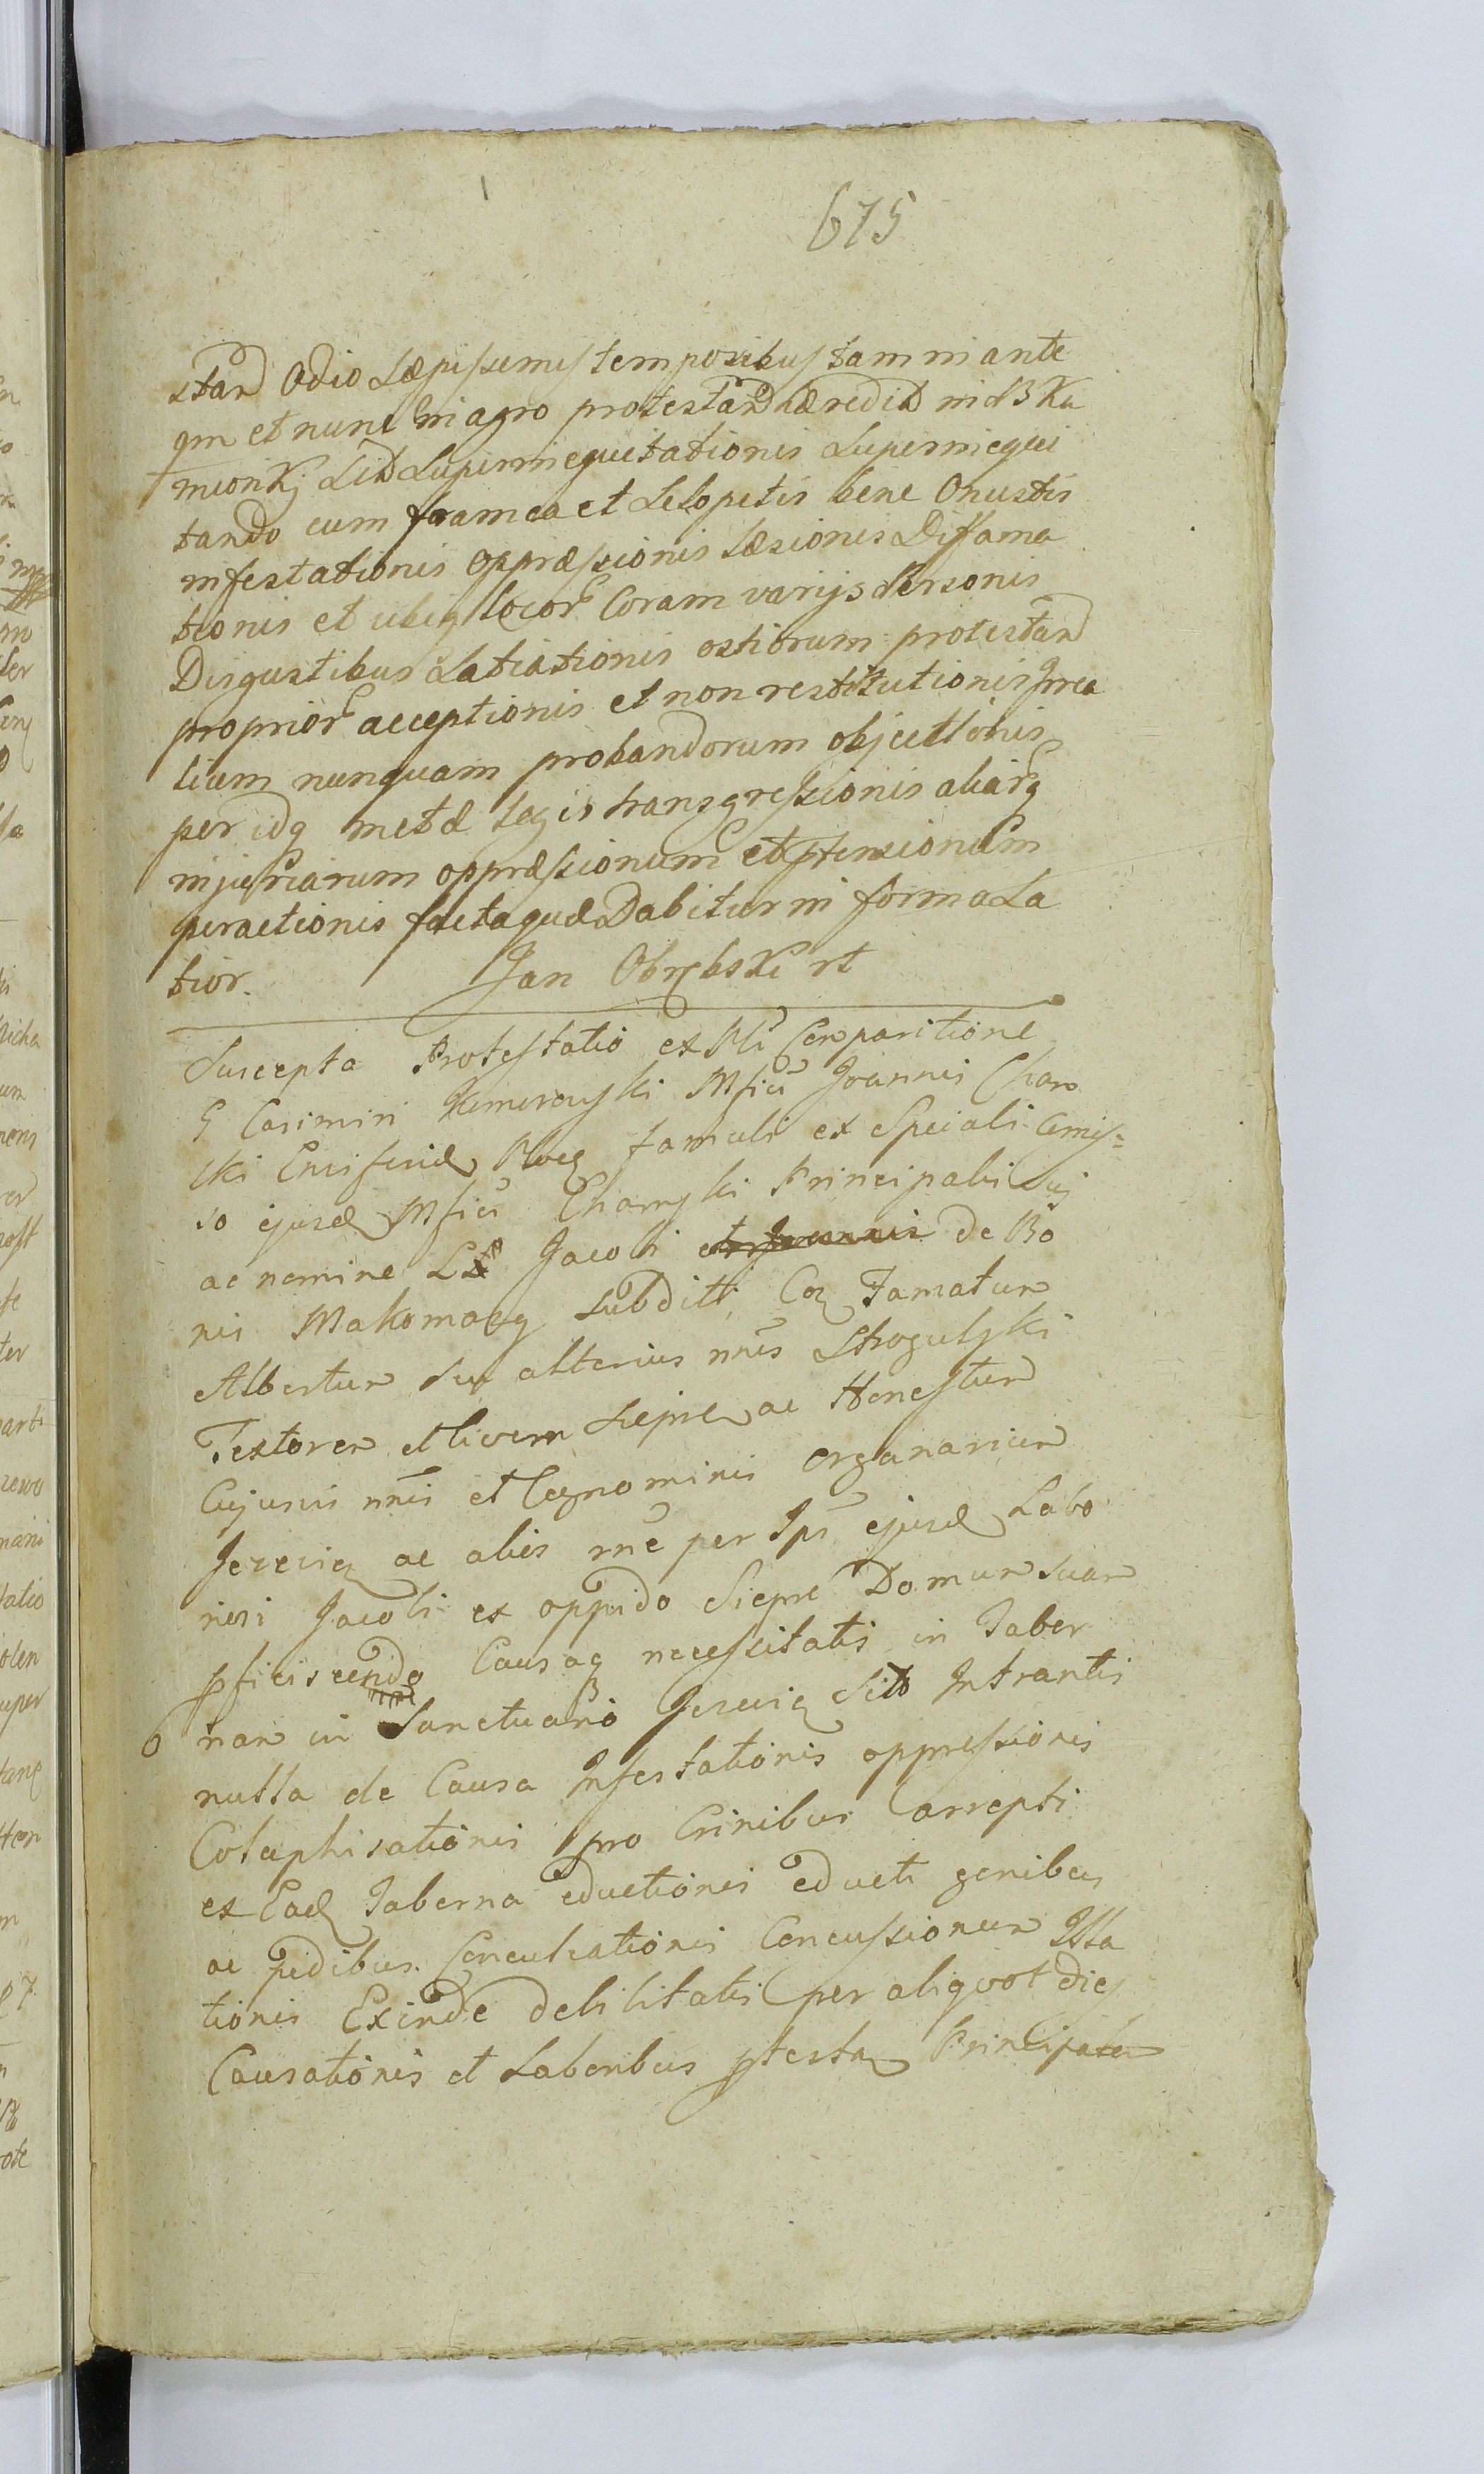 675
stand Odio Sæpissimis temporibus tam in ante
qm et nunc in agro protestand hæredit in B Ka
mionki Sit Superinequitationis Superinequi
tando cum framea et Selopetis bene Onustis
infestationis oppræssionis Læsionis Diffama
tionis et ubiq locor Coram varijs Personis
Disgustibus Satiationis ostiorum protestan
proprior acceptionis et non restitutionis Irea
lium nunquam probandorum objectionis
per idq metæ legis transgressionis aliarq
injuriarum oppræssionum et ptensionum
peractionis facta quæ Dabitur in forma La
tior. Jan Obrębski rt
Suscepta Protestatio ex Pli Comparitione
G Casimiri Mfici Joannis Charz
ski Ensiferid Ploc famuli ex Speciali Comis=
so ejusd Mfici Charzski Principalis Sui
ac nomine Lab Jacobi et Joannis de Bo
nis Makomazy Subditi, Con Famatum
Albertum seu alterius nnis Strogulski
Textorem et Civem Siepre ac Honestum
Cujusvis nnis et Cognominis Organarium
Jezevien ac alios rne per Ips ejusd Labo
riosi Jacobi ex oppido Siepre Domum suam
pficiscendo Causaq necessitatis in Taber
6 nam in Sanctuario Jezevien Sito Intrantis
nulla de Causa Infestationis oppressionis
Colaphisationis pro Crinibus Carrepti
ex Ead Taberna eductionis educti genibus
ac pedibus Conculcationis Concussionum Illa
tionis Exinde debilitatis per aliquot dies
Causationis et Laboribus ptestan Principalem